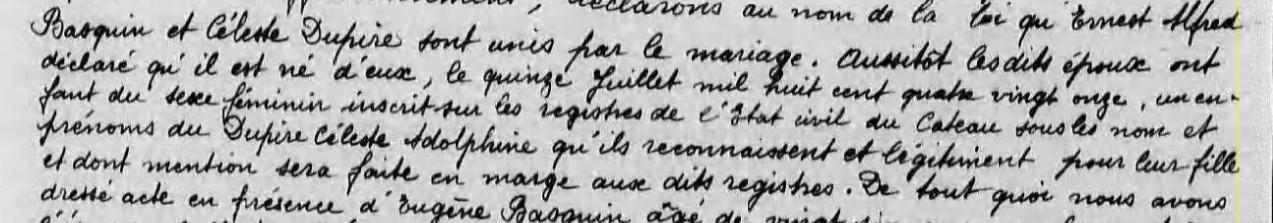 déclarons au nom de la loi qu'Ernest Alfred
Basquin et Céleste Dupire sont unis par le mariage. Aussitôt lesdits époux ont
déclaré qu'il est né d'eux, le quinze Juillet mil huit cent quatre vingt onze, un en-
fant du sexe féminin inscrit sur les registres de l'Etat civil du Cateau sous les nom et
prénoms du Dupire Céleste Adolphine qu'ils reconnaissent et légitiment pour leur fille
et dont mention sera faite en marge aux dits registres. De tout quoi nous avons
dressé acte en présence d'Eugène Basquin âgé de vingt